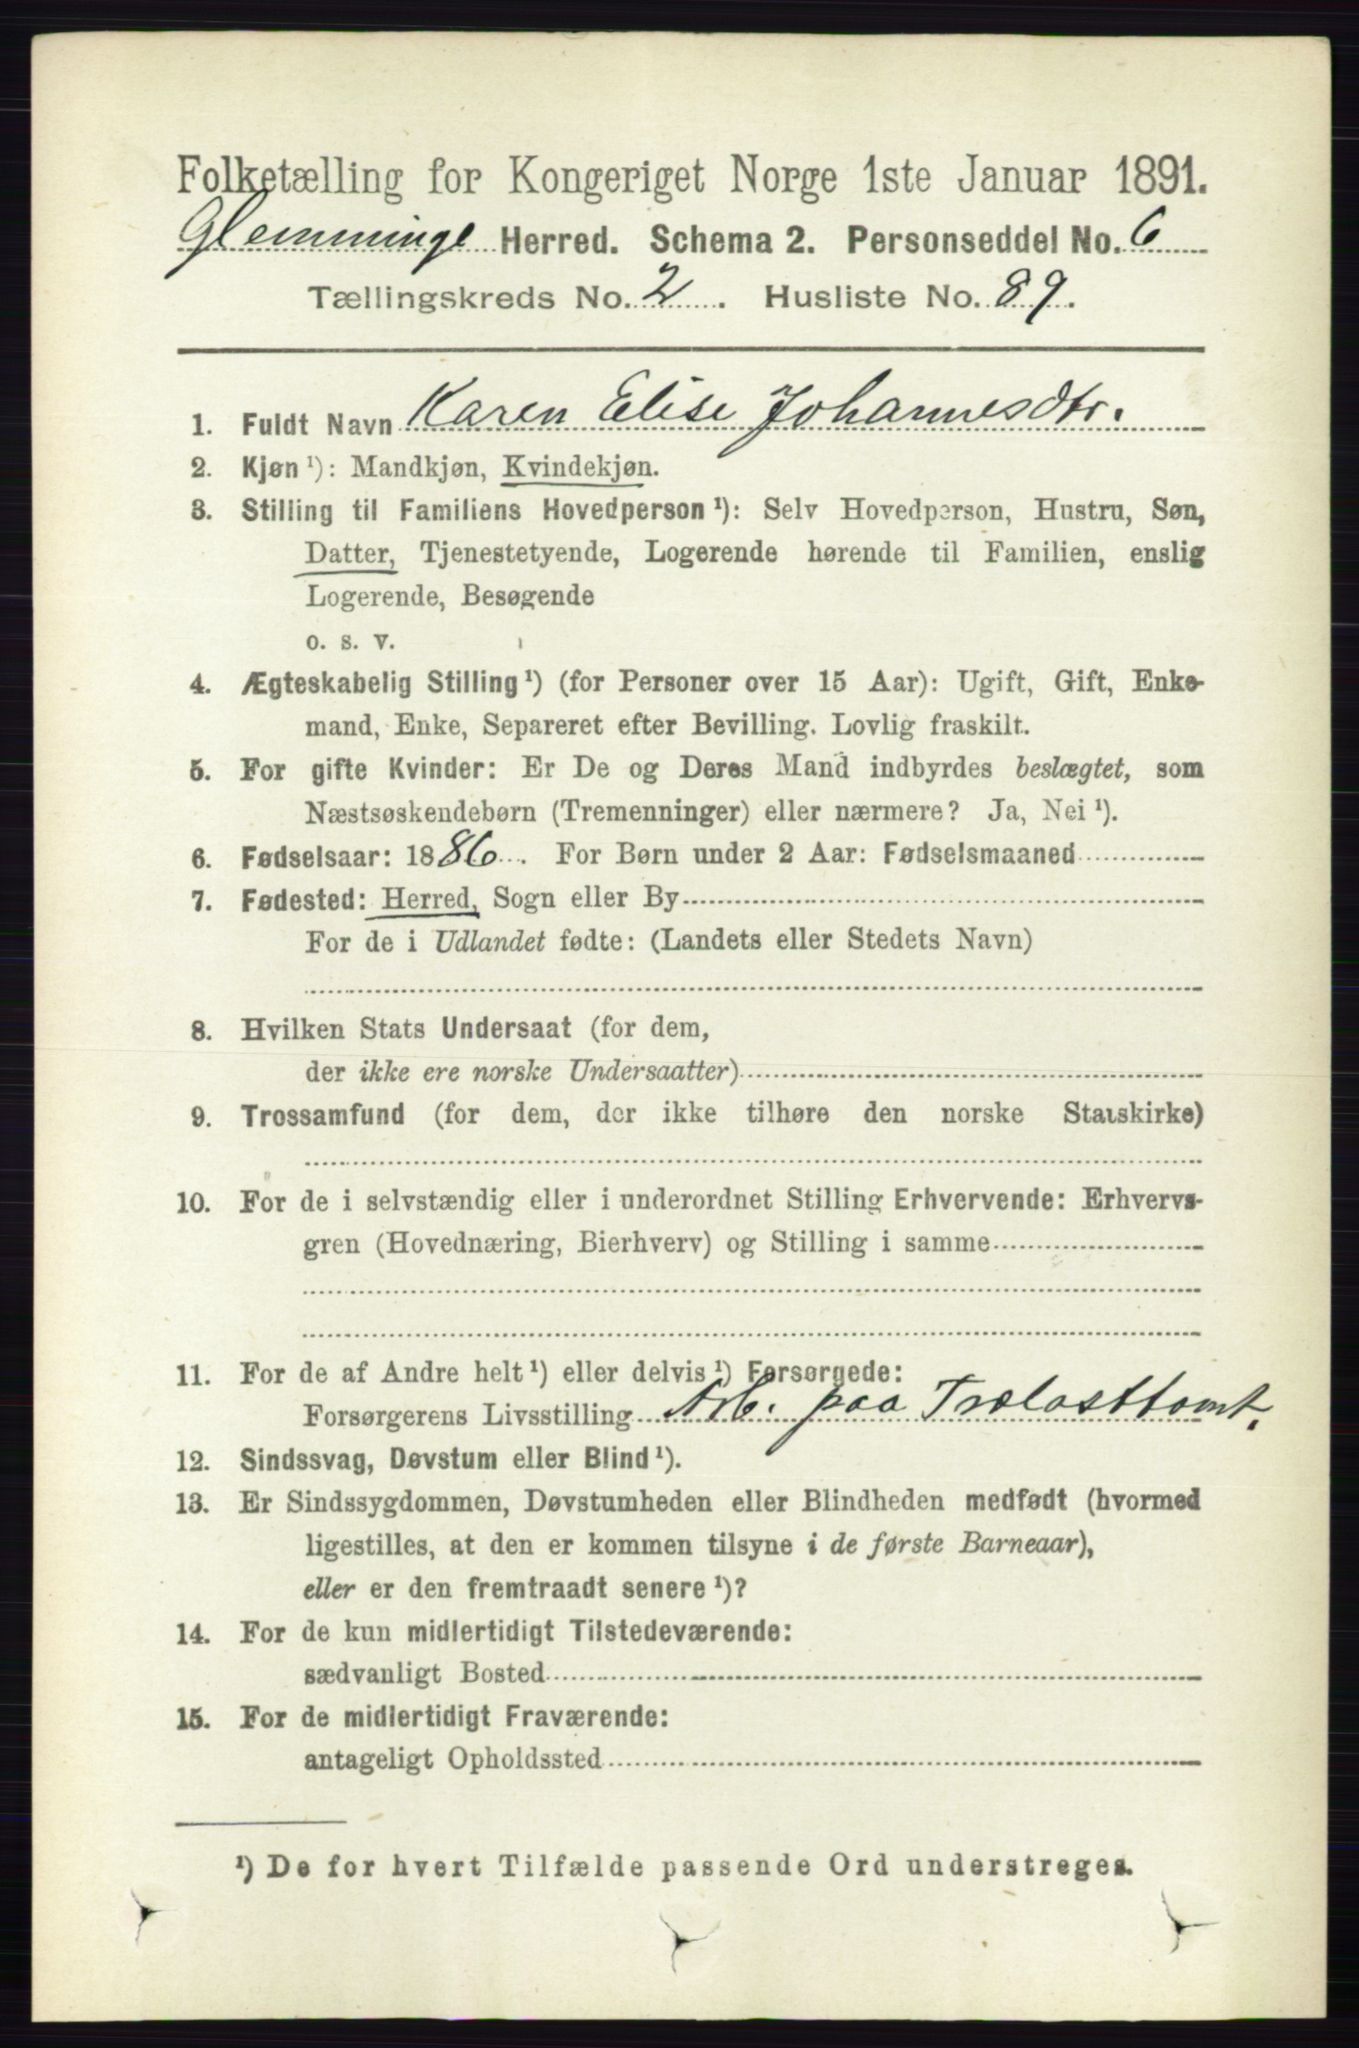 Folketælling for Kongeriget Norge 1ste Januar 1891.
Glemminge Herred. Schema 2. Personseddel No. 6
Tællingskreds No. 2. Husliste No. 89.
1. Fuldt Navn Karen Elise Johannesdtr.
2. Kjøn ¹): Mandkjøn, Kvindekjøn.
3. Stilling til Familiens Hovedperson ¹): Selv Hovedperson, Hustru, Søn,
Datter, Tjenestetyende, Logerende hørende til Familien, enslig
Logerende, Besøgende
o. s. v.
4. Ægteskabelig Stilling ¹) (for Personer over 15 Aar): Ugift, Gift, Enke-
mand, Enke, Separeret efter Bevilling. Lovlig fraskilt.
5. For gifte Kvinder: Er De og Deres Mand indbyrdes beslægtet, som
Næstsøskendebørn (Tremenninger) eller nærmere? Ja, Nei ¹).
6. Fødselsaar: 1886. For Børn under 2 Aar: Fødselsmaaned
7. Fødested: Herred, Sogn eller By
For de i Udlandet fødte: (Landets eller Stedets Navn)
8. Hvilken Stats Undersaat (for dem,
der ikke ere norske Undersaatter)
9. Trossamfund (for dem, der ikke tilhøre den norske Statskirke)
10. For de i selvstændig eller i underordnet Stilling Erhvervende: Erhvervs-
gren (Hovednæring, Bierhverv) og Stilling i samme
11. For de af Andre helt ¹) eller delvis ¹) Forsørgede:
Forsørgerens Livsstilling Arb. paa Trælasttomt.
12. Sindssvag, Døvstum eller Blind ¹).
13. Er Sindssygdommen, Døvstumheden eller Blindheden medfødt (hvormed
ligestilles, at den er kommen tilsyne i de første Barneaar),
eller er den fremtraadt senere ¹)?
14. For de kun midlertidigt Tilstedeværende:
sædvanligt Bosted
15. For de midlertidigt Fraværende:
antageligt Opholdssted
¹) De for hvert Tilfælde passende Ord understreges.